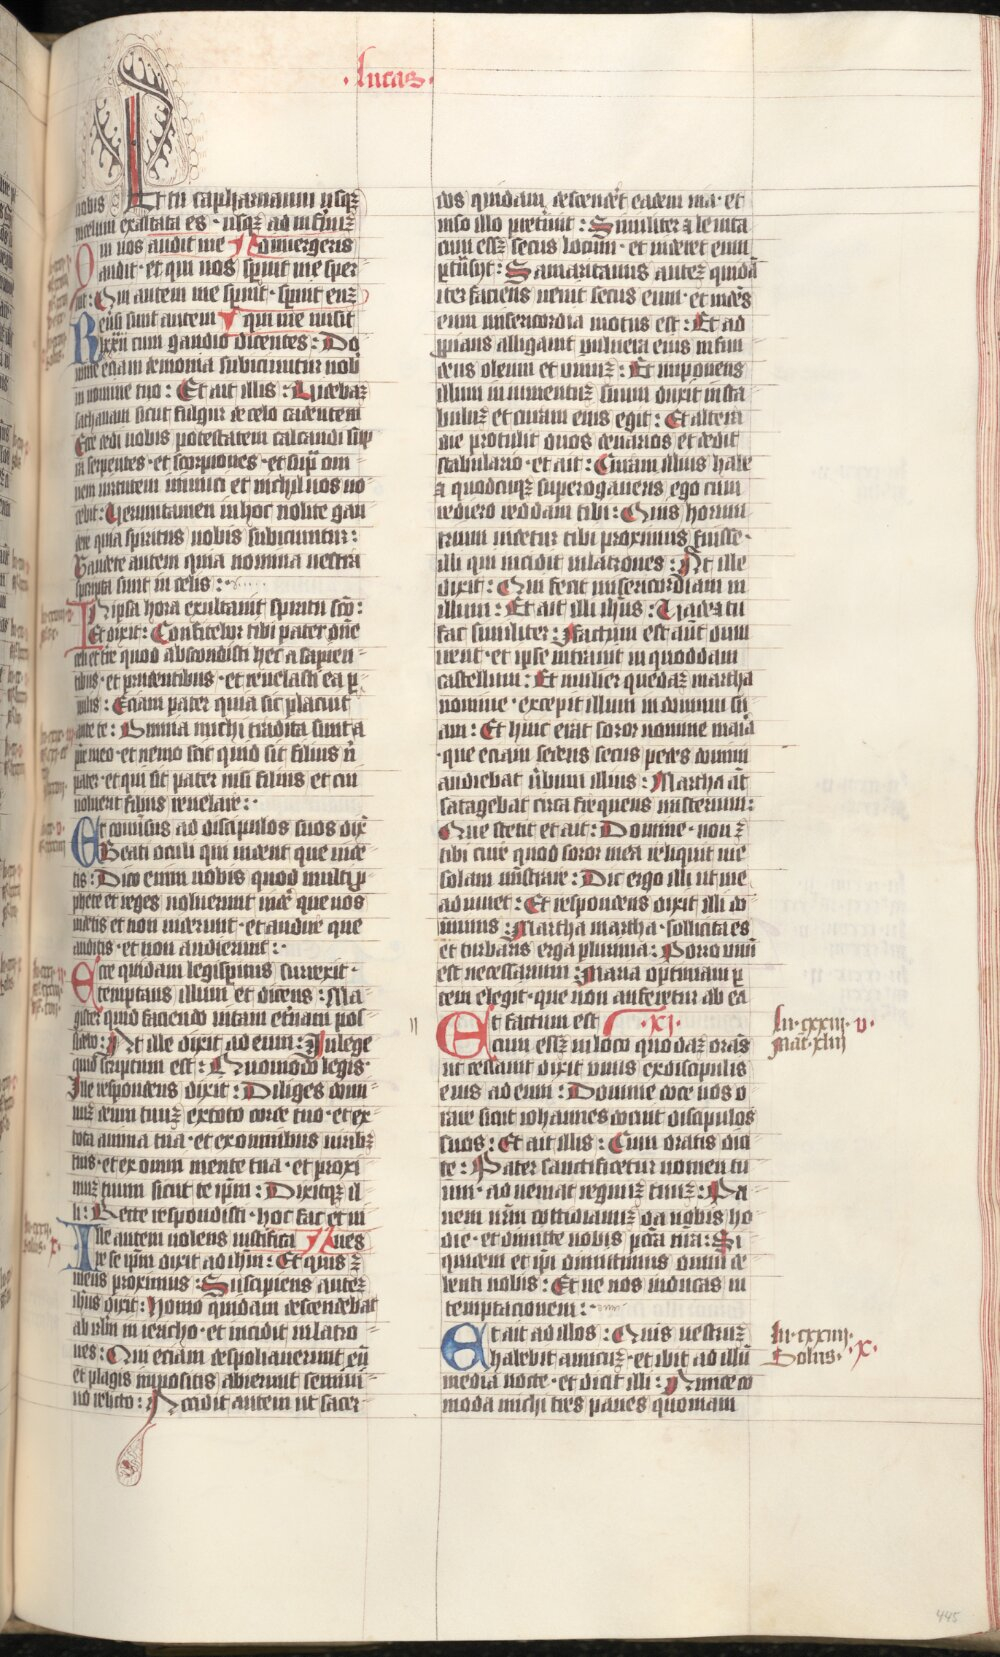 ·lucas·
nobis Et tu capharnaum usqȝ
in celum exaltata es · usqȝ ad infernuȝ
Qui vos audit me
audit · et qui vos spnit me sper
nit : Qui autem me spnit · spnit euȝ
Reusi sunt autem qui me misit
lxxii cum gaudio dicentes : Do
mine eciam demonia subiciuntur nob
in nomine tuo : Et ait illis : Videbaȝ
sathanam sicut fulgur de celo cadentem
Ecce dedi vobis potestatem calcandi sup
ra serpentes · et scorpiones · et sup om
nem virtutem inimici et nichil vos no
cebit : Verumtamen in hoc nolite gau
dere quia spiritus vobis subiciuntur :
Gaudete autem quia nomina vestra
scripta sunt in celis :
In ipsa hora exultauit spiritu sco :
Et dixit : Confiteor tibi pater dne
celi et tre quod abscondisti hec a sapien
tibus · et prudentibus · et reuelasti ea p
uulis : Eciam pater quia sic placuit
ante te : Omnia michi tradita sunt a
pre meo · et nemo scit quid sit filius n
pater · et qui sit pater nisi filius et cui
uoluerit filius reuelare :
Et conusus ad discipulos suos dix
Beati oculi qui uident que uide
tis : Dico enim uobis quod multi p
phete et reges uoluerunt uide que uos
uidetis et non uiderunt · et audire que
auditis · et non audierunt :
Ecce quidam legispitus surrexit ·
temptans illum et dicens : Ma
gister quid faciendo uitam eternam pos
sidebo : At ille dixit ad eum : In lege
quid scriptum est : Quomodo legis ·
Ille respondens dixit : Diliges domi
nuȝ deum tuuȝ ex toto corde tuo · et ex
tota anima tua · et ex omnibus uiribȝ
tuis · et ex omni mente tua · et proxi
muȝ tuum sicut te ipm : Dixitqȝ il
li : Recte respondisti · hoc fac et ui
Ille autem uolens iustifica ues
re se ipm dixit ad ihm : Et quis ȝ
meus proximus : Suscipiens auteȝ
ihus dixit : Homo quidam descendebat
ab ihrlm in iericho · et incidit in latro
nes : Qui eciam despoliauerunt eu
et plagis impositis abierunt semiui
uo relicto : Accidit autem ut sacer
dos quidam descenderet eadem uia · et
uiso illo pretiuit : Similiter et leuita
cum esȝ secus locum · et uideret eum
ptnsijt : Samaritanus auteȝ quida
iter faciens uenit secus eum · et uides
eum misericordia motus est : Et ad
prians alligauit uulnera eius infun
dens oleum et uinuȝ : Et imponens
illum in iumentuȝ suum duxit in sta
buluȝ et curam eius egit : Et altera
die protulit duos denarios et dedit
stabulario · et ait : Curam illius habe
et quodcuqȝ superogaueris ego cum
rediero reddam tibi : Quis horum
trium uidetur tibi proximus fuisse ·
illi qui incidit in latrones : At ille
dixit : Qui fecit misericordiam in
illum : Et ait illi ihus : Vade et tu
fac similiter : Factum est aut dum
irent · et ipse intrauit in quoddam
castellum : Et mulier quedaȝ martha
nomine · excepit illum in domum su
am : Et huic erat soror nomine maia
· que eciam sedens secus pedes domini
audiebat ubum illius : Martha at
satagebat circa frequens misterium :
Que stetit et ait : Domine · non ȝ
tibi cure quod soror mea reliquit me
solam mistrare : Dic ergo illi ut me
adiuuet : Et respondens dixit illi do
minus : Martha martha · sollicita es
et turbaris erga plurima : Porro unu
est necessarium : Maria optimam p
tem elegit · que non auferetur ab ea
Et factum est ·XI·
cum esȝ in loco quodaȝ oras
ut cessauit dixit unus ex discipulis
eius ad eum : Domine doce nos o
rare sicut iohannes docuit discipulos
suos : Et ait illis : Cum oratis dici
te : Pater sanctificetur nomen tu
um · adueniat regnuȝ tuuȝ : Pa
nem nrm cottidianuȝ da nobis ho
die · et dimitte nobis pcta nra : Si
quidem et ipi dimittimus omni de
benti nobis : Et ne nos inducas in
temptacionem :
Et ait ad illos : Quis uestruȝ
habebit amicuȝ · et ibit ad illu
media nocte · et dicit illi : Amice co
moda michi tres panes quoniam
lu·cxxiii· v·
Mat·xliii
lu·cxxiiii·
Solus· ·x·
445